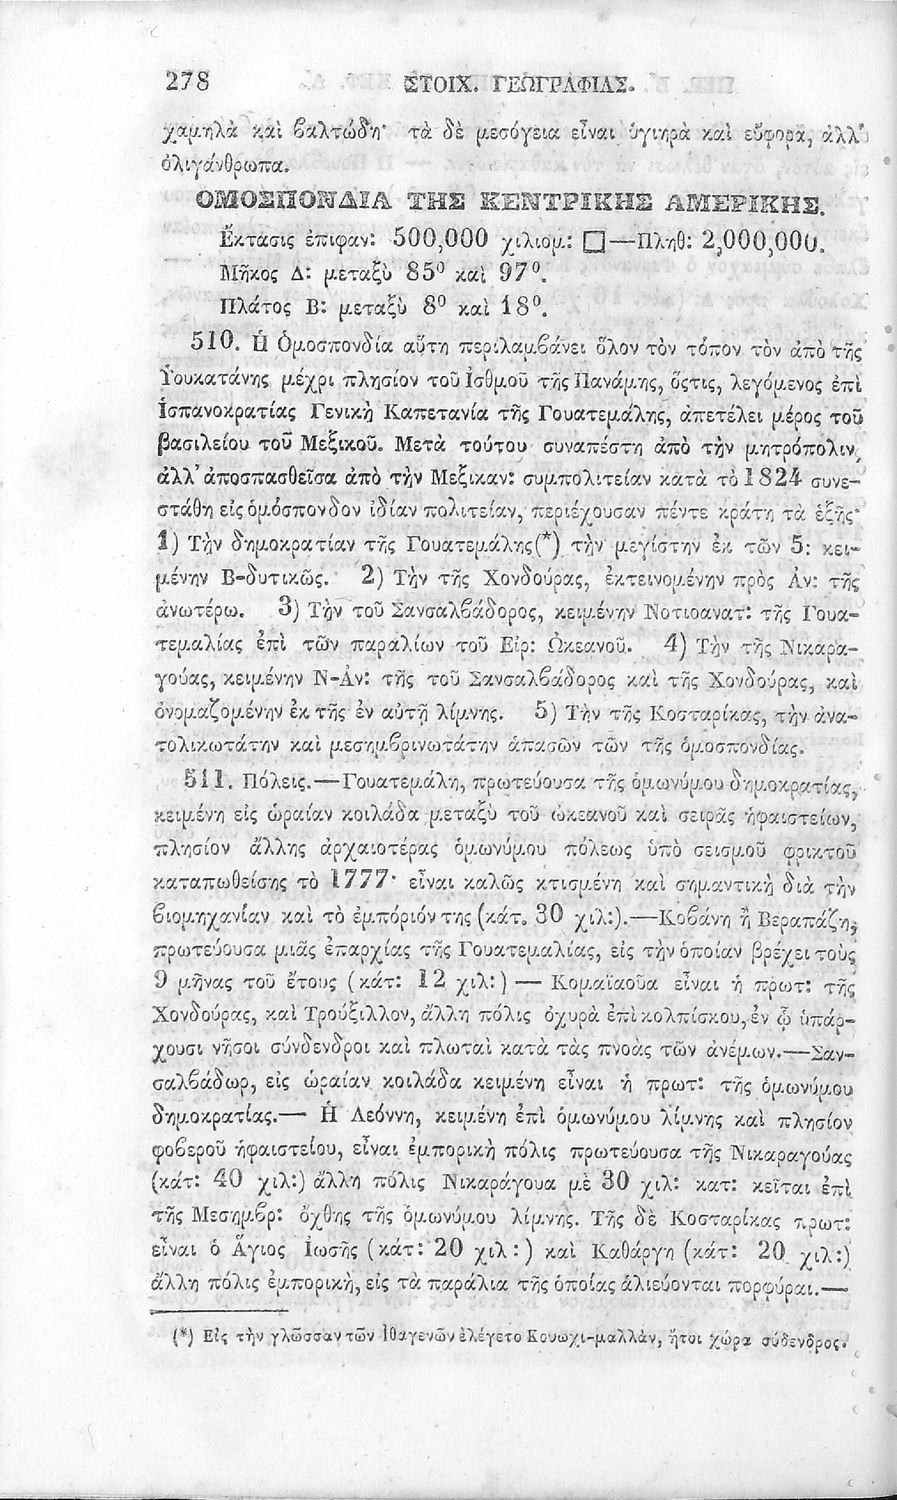 278 ΣΤΟΙΧ. ΓΕΩΓΡΑΦΙΑΣ.
χαμηλὰ καὶ βαλτώδη· τὰ δὲ μεσόγεια εἶναι ὑγιηρὰ καὶ εὔφορα, ἀλλ'
ὀλιγάνθρωπα.
ΟΜΟΣΠΟΝΔΙΑ ΤΗΣ ΚΕΝΤΡΙΚΗΣ ΑΜΕΡΙΚΗΣ.
Ἔκτασις ἐπιφαν: 500,000 χιλιομ: □—Πληθ: 2,000,000.
Μῆκος Δ: μεταξὺ 85⁰ καὶ 97⁰.
Πλάτος Β: μεταξὺ 8⁰ καὶ 18⁰.
510. Ἡ Ὁμοσπονδία αὕτη περιλαμβάνει ὅλον τὸν τόπον τὸν ἀπὸ τῆς
Ἰουκατάνης μέχρι πλησίον τοῦ Ἰσθμοῦ τῆς Πανάμης, ὅςτις, λεγόμενος ἐπὶ
Ἱσπανοκρατίας Γενικὴ Καπετανία τῆς Γουατεμάλης, ἀπετέλει μέρος τοῦ
βασιλείου τοῦ Μεξικοῦ. Μετὰ τούτου συναπέστη ἀπὸ τὴν μητρόπολιν,
ἀλλ' ἀποσπασθεῖσα ἀπὸ τὴν Μεξικαν: συμπολιτείαν κατὰ τὸ 1824 συνε-
στάθη εἰς ὁμόσπονδον ἰδίαν πολιτείαν, περιέχουσαν πέντε κράτη τὰ ἑξῆς·
1) Τὴν δημοκρατίαν τῆς Γουατεμάλης(*) τὴν μεγίστην ἐκ τῶν 5: κει-
μένην Β-δυτικῶς. 2) Τὴν τῆς Χονδούρας, ἐκτεινομένην πρὸς Ἀν: τῆς
ἀνωτέρω. 3) Τὴν τοῦ Σανσαλβάδορος, κειμένην Νοτιοανατ: τῆς Γουα-
τεμαλίας ἐπὶ τῶν παραλίων τοῦ Εἰρ: Ὠκεανοῦ. 4) Τὴν τῆς Νικαρα-
γούας, κειμένην Ν-Ἀν: τῆς τοῦ Σανσαλβάδορος καὶ τῆς Χονδούρας, καὶ
ὀνομαζομένην ἐκ τῆς ἐν αὐτῇ λίμνης. 5) Τὴν τῆς Κοσταρίκας, τὴν ἀνα-
τολικωτάτην καὶ μεσημβρινωτάτην ἁπασῶν τῶν τῆς ὁμοσπονδίας.
511. Πόλεις.—Γουατεμάλη, πρωτεύουσα τῆς ὁμωνύμου δημοκρατίας,
κειμένη εἰς ὡραίαν κοιλάδα μεταξὺ τοῦ ὠκεανοῦ καὶ σειρᾶς ἡφαιστείων,
πλησίον ἄλλης ἀρχαιοτέρας ὁμωνύμου πόλεως ὑπὸ σεισμοῦ φρικτοῦ
καταπωθείσης τὸ 1777· εἶναι καλῶς κτισμένη καὶ σημαντικὴ διὰ τὴν
βιομηχανίαν καὶ τὸ ἐμπόριόν της (κάτ. 30 χιλ:).—Κοβάνη ἢ Βεραπάζη,
πρωτεύουσα μιᾶς ἐπαρχίας τῆς Γουατεμαλίας, εἰς τὴν ὁποίαν βρέχει τοὺς
9 μῆνας τοῦ ἔτους (κάτ: 12 χιλ:) — Κομαϊαοῦα εἶναι ἡ πρωτ: τῆς
Χονδούρας, καὶ Τρούξιλλον, ἄλλη πόλις ὀχυρὰ ἐπὶ κολπίσκου, ἐν ᾧ ὑπάρ-
χουσι νῆσοι σύνδενδροι καὶ πλωταὶ κατὰ τὰς πνοὰς τῶν ἀνέμων.—Σαν-
σαλβάδωρ, εἰς ὡραίαν κοιλάδα κειμένη εἶναι ἡ πρωτ: τῆς ὁμωνύμου
δημοκρατίας.— Ἡ Λεόννη, κειμένη ἐπὶ ὁμωνύμου λίμνης καὶ πλησίον
φοβεροῦ ἡφαιστείου, εἶναι ἐμπορικὴ πόλις πρωτεύουσα τῆς Νικαραγούας
(κάτ: 40 χιλ:) ἄλλη πόλις Νικαράγουα μὲ 30 χιλ: κατ: κεῖται ἐπὶ
τῆς Μεσημβρ: ὄχθης τῆς ὁμωνύμου λίμνης. Τῆς δὲ Κοσταρίκας πρωτ:
εἶναι ὁ Ἅγιος Ἰωσῆς (κάτ: 20 χιλ:) καὶ Καθάργη (κάτ: 20 χιλ:)
ἄλλη πόλις ἐμπορικὴ, εἰς τὰ παράλια τῆς ὁποίας ἁλιεύονται πορφύραι.—
(*) Εἰς τὴν γλῶσσαν τῶν Ἰθαγενῶν ἐλέγετο Κουωχι-μαλλὰν, ἤτοι χώρα σύδενδρος.